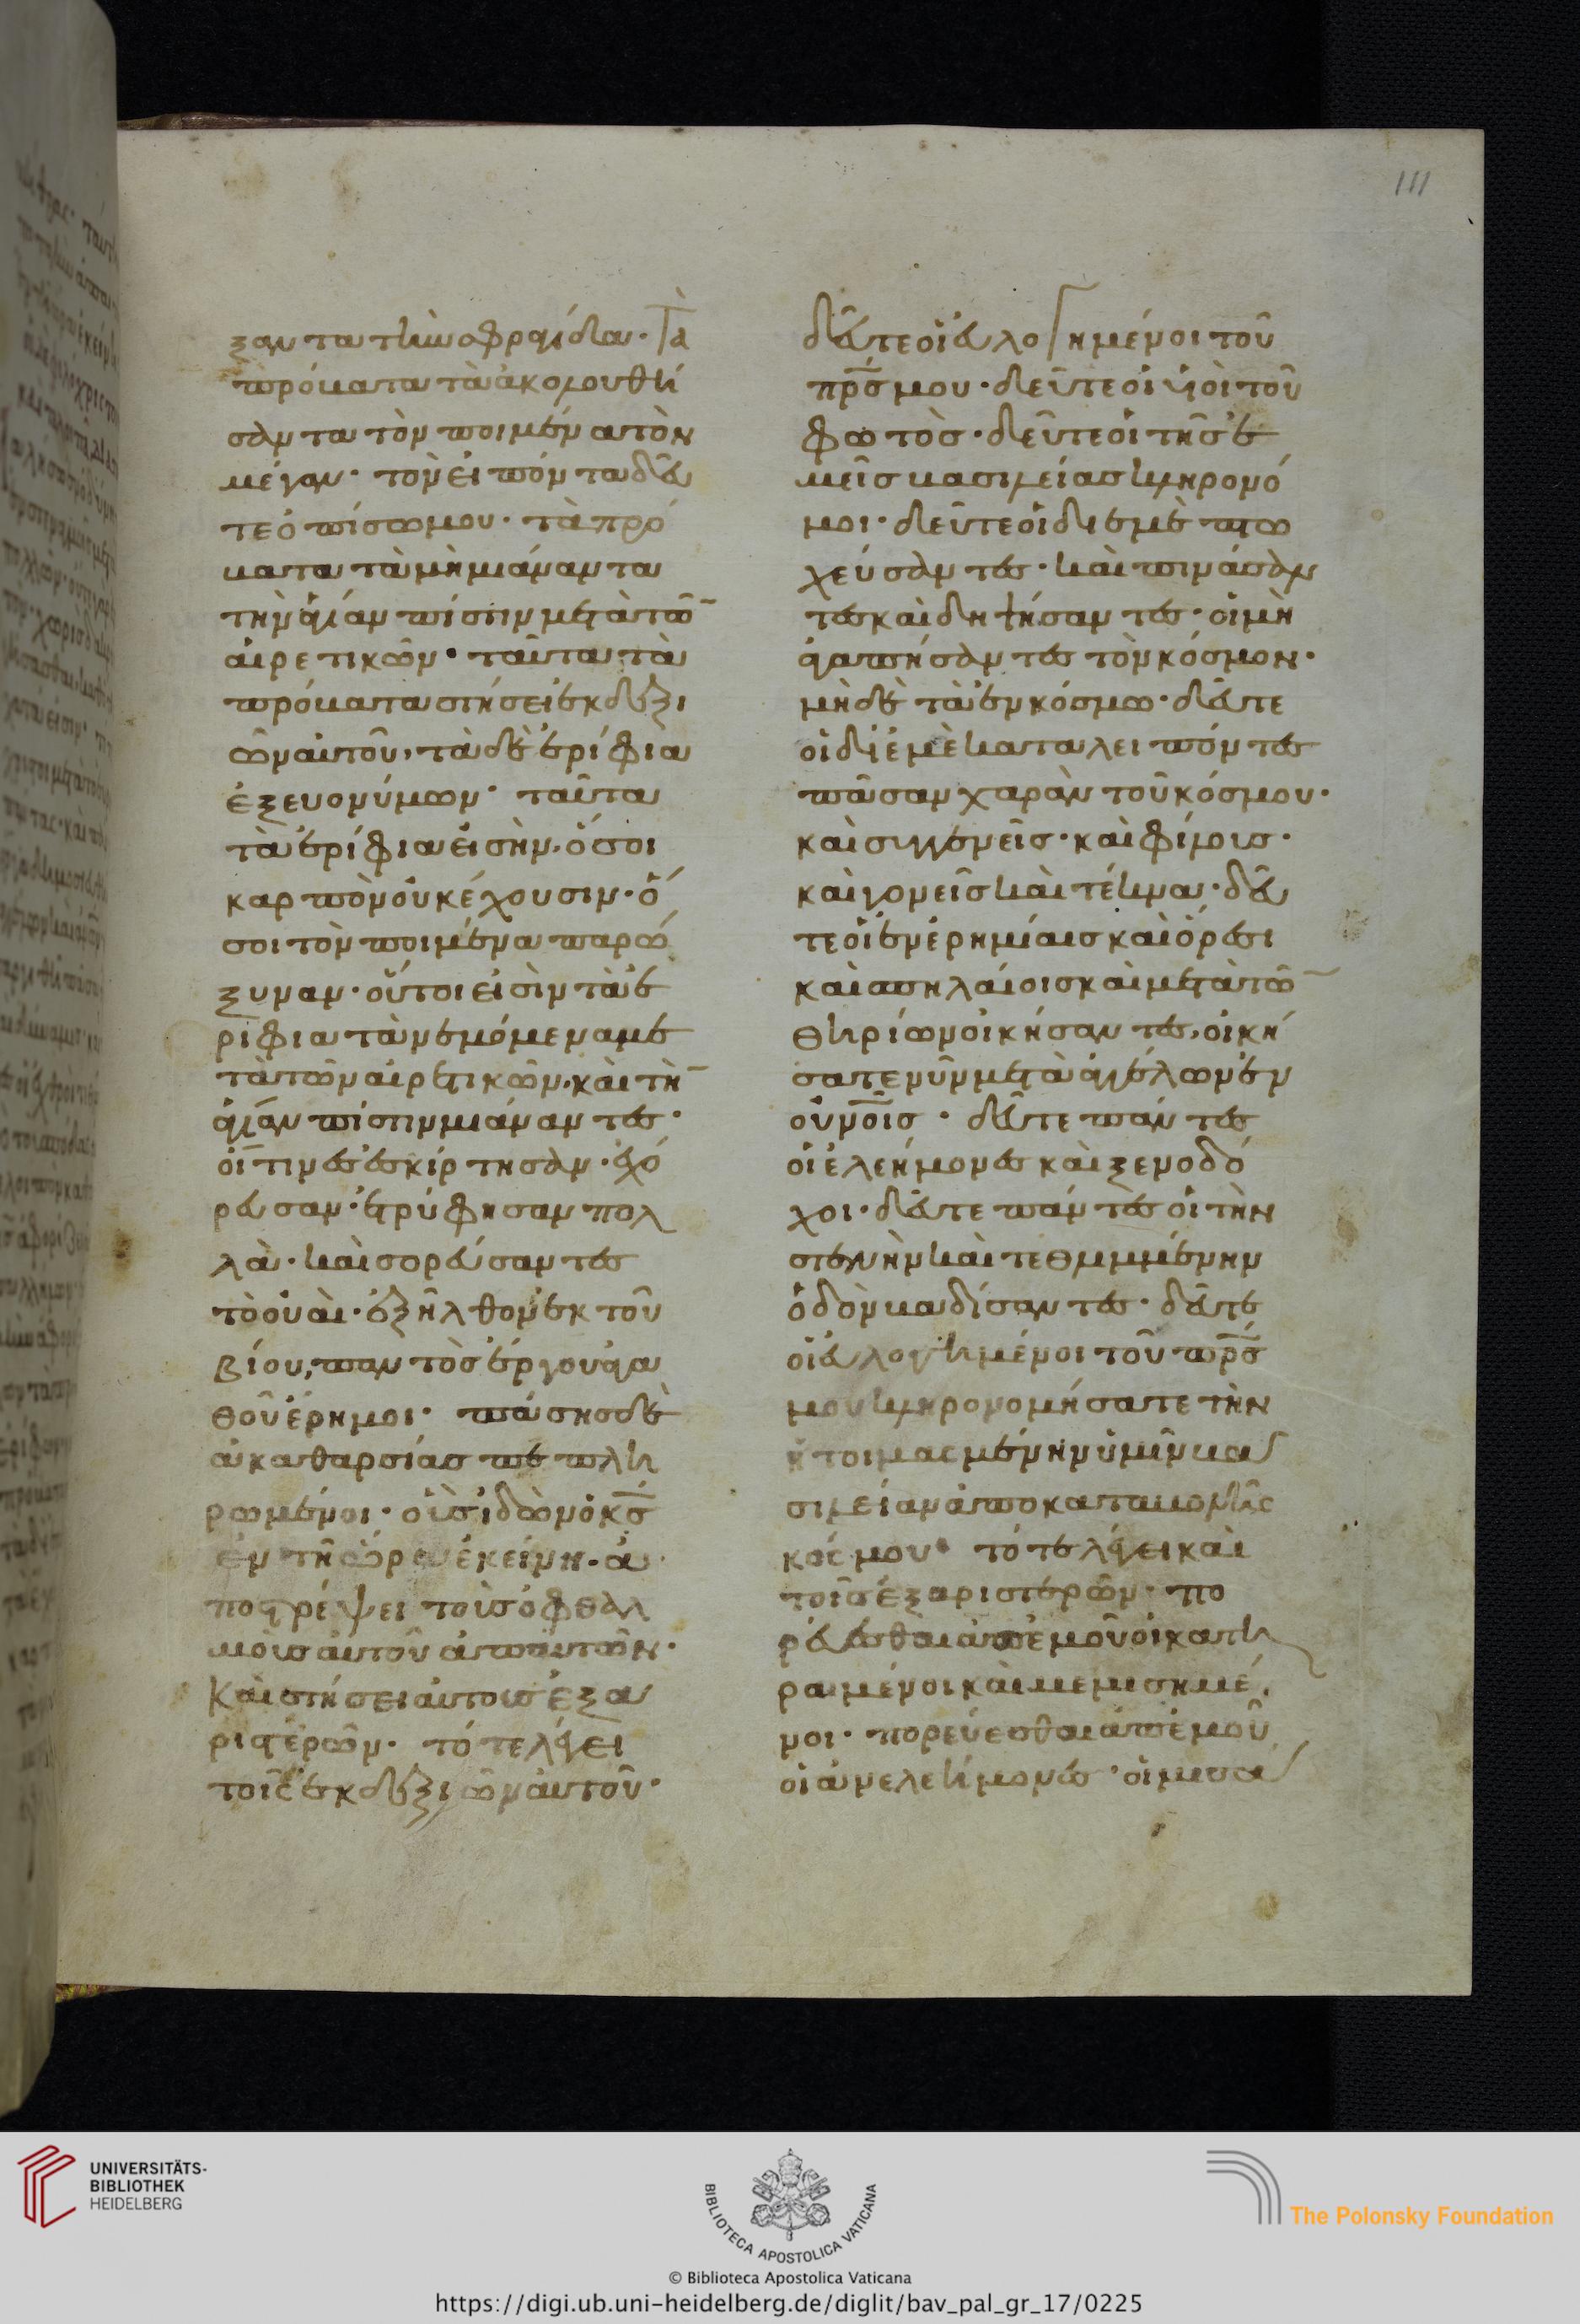 111
ξαντα τὴν σφραγίδα. Τὰ
πρόβατα τὰ ἀκολουθή
σαντα τὸν ποιμένα τὸν
μέγαν. τὸν εἰπόντα δεῦ
τε ὀπίσω μου. τὰ πρό
βατα τὰ μὴ μιάναντα
τὴν ἁγίαν πίστιν μετὰ τῶ
αἱρετικῶν. ταῦτα τὰ
πρόβατα στήσει ἐκ δεξι
ῶν αὐτοῦ, τὰ δὲ ἐρίφια
ἐξ εὐονύμων. ταῦτα
τὰ ἐρίφια εἰσὴν, ὅσοι
καρπὸν οὐκ έχουσιν. ὅ
σοι τὸν ποιμένα παρώ
ξυναν. οὗτοι εἰσὶν τὰ ἐ
ρίφια τὰ νεμόμενα με
τὰ τῶν αἱρετικῶν. καὶ τὴ
ἁγίαν πίστιν μιάναντες.
οἵτινες ἐσκίρτησαν. ἐχό
ρευσαν. ἐτρύφησαν πολ
λὰ. καὶ σορεύσαντες
τὸ οὐαὶ. ἐξῆλθον ἐκ τοῦ
βίου, παντὸς έργου ἀγα
θοῦ έρημοι. πάσης δὲ
ἀκαθαρσίας πεπλη
ρωμένοι. οὓς ἰδὼν ὁ κς
ἐν τῆ ὥρα ἐκείνη. ἀ
ποστρέψει τοὺς ὀφθαλ
μοὺς αὐτοῦ ἀπ αυτῶν.
Καὶ στήσει αὐτους ἐξ α
ριστερῶν. τότε λέγει
τοῖς ἐκ δεξιῶν αὐτοῦ.
δεῦτε οἱ εὐλογημένοι τοῦ
πρς μου. δεῦτε οἱ υἱοὶ τοῦ
φωτὸς. δεῦτε οἱ τῆς ἐ
μεῖς βασιλείας κληρονό
μοι. δεῦτε οἱ δι ἐμὲ πτω
χεύσαντες. καὶ πινάσαν
τες καὶ διψήσαντες. οἱ μὴ
ἀγαπήσαντες τὸν κόσμον.
μὴ δὲ τὰ ἐν κόσμω. δεῦτε
οἱ δι ἐμὲ καταλειπόντες
πᾶσαν χαρὰν τοῦ κόσμου.
καὶ συγγενεῖς. καὶ φίλους.
καὶ γονεῖς καὶ τέκνα. δεῦ
τε οἱ ἐν ἐρημίαις καὶ ὄρεσι
καὶ σπηλαίοις καὶ μετὰ τῶ
θηρίων οἰκήσαντες, οἰκή
σατε νῦν μετὰ ἀγγέλων ἐν
οὐνοῖς. δεῦτε παντες
οἱ ἐλεήμονες καὶ ξενοδό
χοι. δεῦτε πάντες οἱ τὴν
στενὴν καὶ τεθλιμμένην
ὁδὸν βαδίσαντες. δεῦτε
οἱ εὐλογημένοι τοῦ πρς
μου κληρονομήσατε τὴν
ἡτοιμασμένην ὑμῖν βα
σιλείαν ἀπο καταβολῆς
κόσμου. τότε λέγει καὶ
τοῖς ἐξ αριστερῶν. πο
ρεύεσθαι ἀπ ἐμοῦ οἱ κατη
ραμένοι καὶ μεμισημέ
νοι. πορεύεσθαι ἀπ ἐμοῦ
οἱ ἀνελεήμονες. οἱ μισα
UNIVERSITÄTS-
BIBLIOTHEK
HEIDELBERG
BIBLIOTECA APOSTOLICA VATICANA
The Polonsky Foundation
© Biblioteca Apostolica Vaticana
https://digi.ub.uni-heidelberg.de/diglit/bav_pal_gr_17/0225